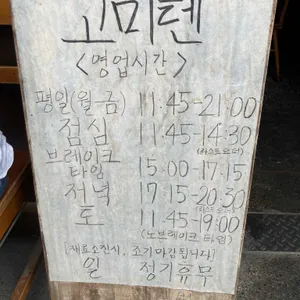 고미텐
<영업시간>
평일(월-금) 11:45-21:00
점심 11:45-14:30
(라스트오더)
브레이크
타임 15:00-17:15
저녁 17:15-20:30
(라스트오더)
토 11:45-19:00
(노브레이크타임)
(재료소진시, 조기마감됩니다)
일 정기휴무